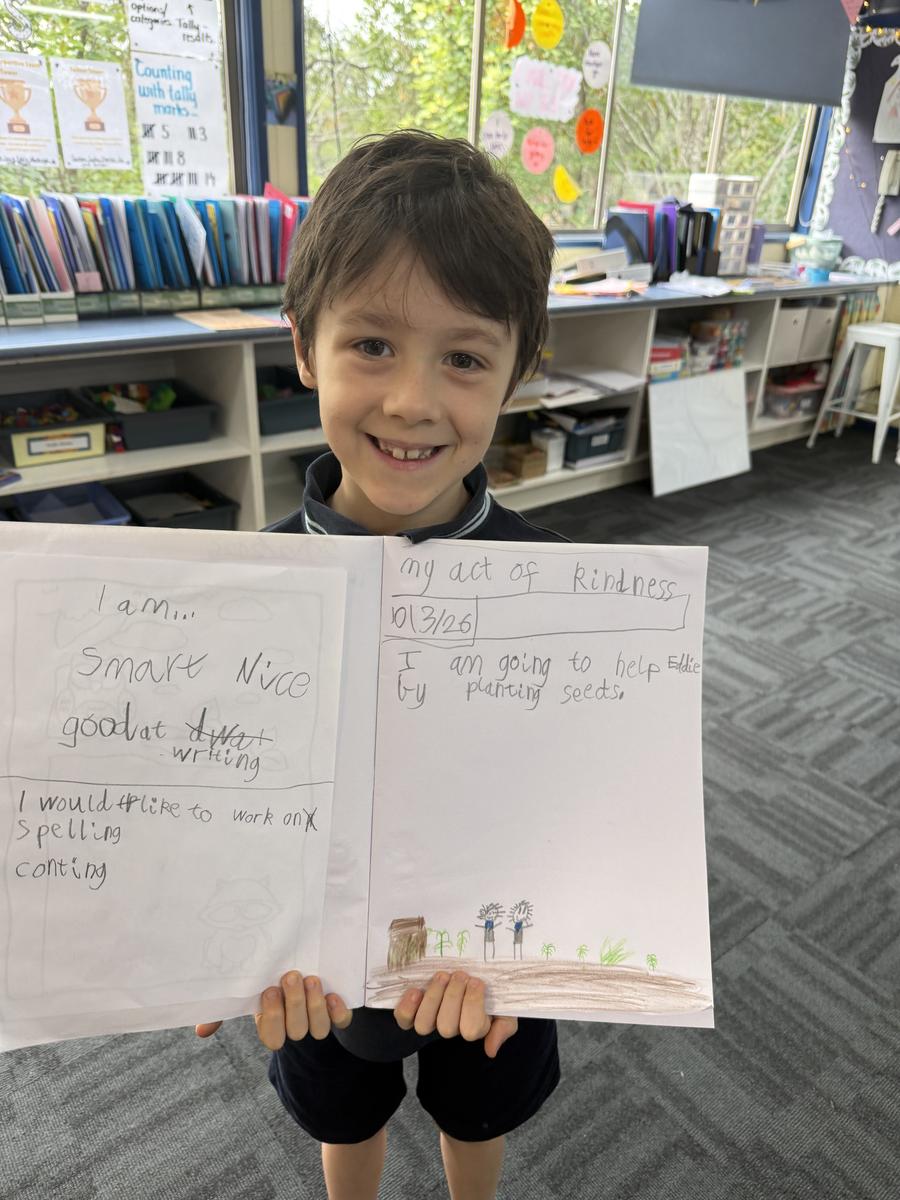 options/
categories Tally
results
Counting
with tally
marks
5 3
8
14
I am...
Smart Nice
good at
writing
I would like to work on
Spelling
conting
my act of kindness
10/3/26
I am going to help Eddie
by planting seeds.